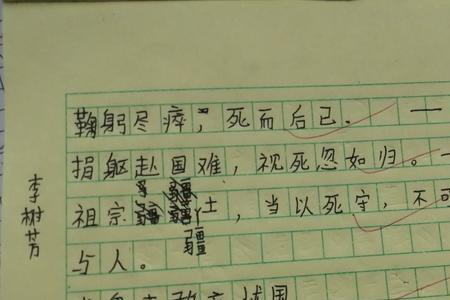 鞠躬尽瘁，死而后已．一
捐躯赴国难，视死忽如归。一
祖宗疆土，当以死守，不可
疆
与人。
李树芳